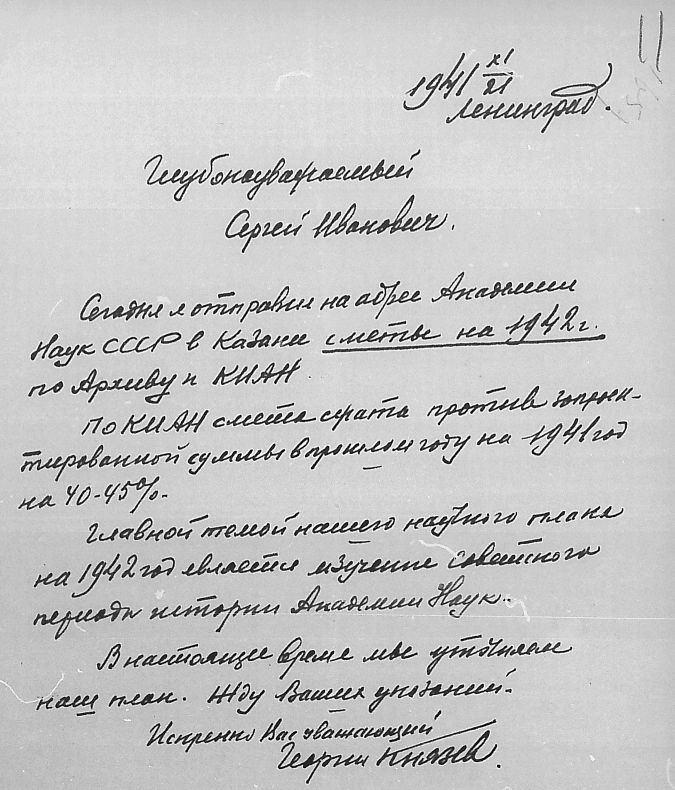 1941 XI/21
Ленинград.
Глубокоуважаемый
Сергей Иванович.
Сегодня я отправил на адрес Академии
Наук СССР в Казани сметы на 1942 г.
по Архиву и КИАН.
По КИАН смета сжата против запроек-
тированной суммы в прошлом году на 1941 год
на 40-45%.
Главной темой нашего научного плана
на 1942 год является изучение советского
периода истории Академии Наук.
В настоящее время мы уточняем
наш план. Жду Ваших указаний.
Искренно Вас уважающий
Георгий Князев.